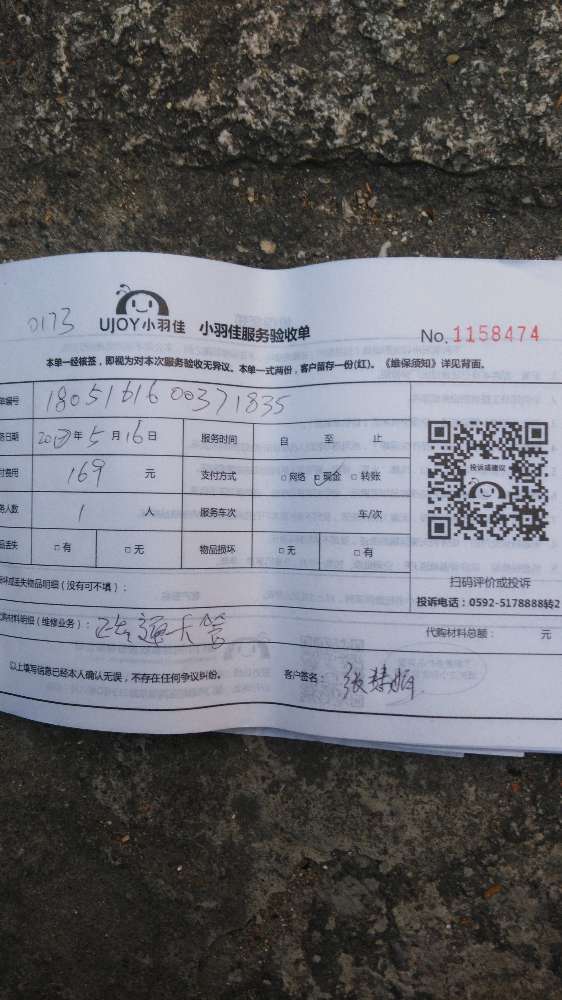 0173
UJOY小羽佳 小羽佳服务验收单
No. 1158474
本单一经核签，即视为对本次服务验收无异议。本单一式两份，客户留存一份(红)。《维保须知》详见背面。
单编号 1805161600371835
务日期 年5月16日 服务时间 自 至 止
付费用 169 元 支付方式 □网络 ☑现金 □转账
务人数 1 人 服务车次 车/次
品丢失 □有 □无 物品损坏 □无 □有
投诉或建议
扫码评价或投诉
投诉电话：0592-5178888转2
坏或丢失物品明细（没有可不填）：
代购材料明细（维修业务）： 通 管
代购材料总额： 元
以上填写信息已经本人确认无误，不存在任何争议纠纷。
客户签名： 张慧娟